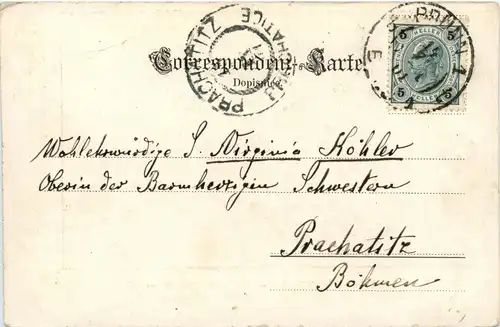 Correspondenz-Karte
Dopisnice
PRACHATITZ
PRACHATICE
5 5
HELLER HELLER
5 5
Wohlehrwürdige S. Virginia Köhler
Oberin der Barmherzigen Schwestern
Prachatitz
Böhmen